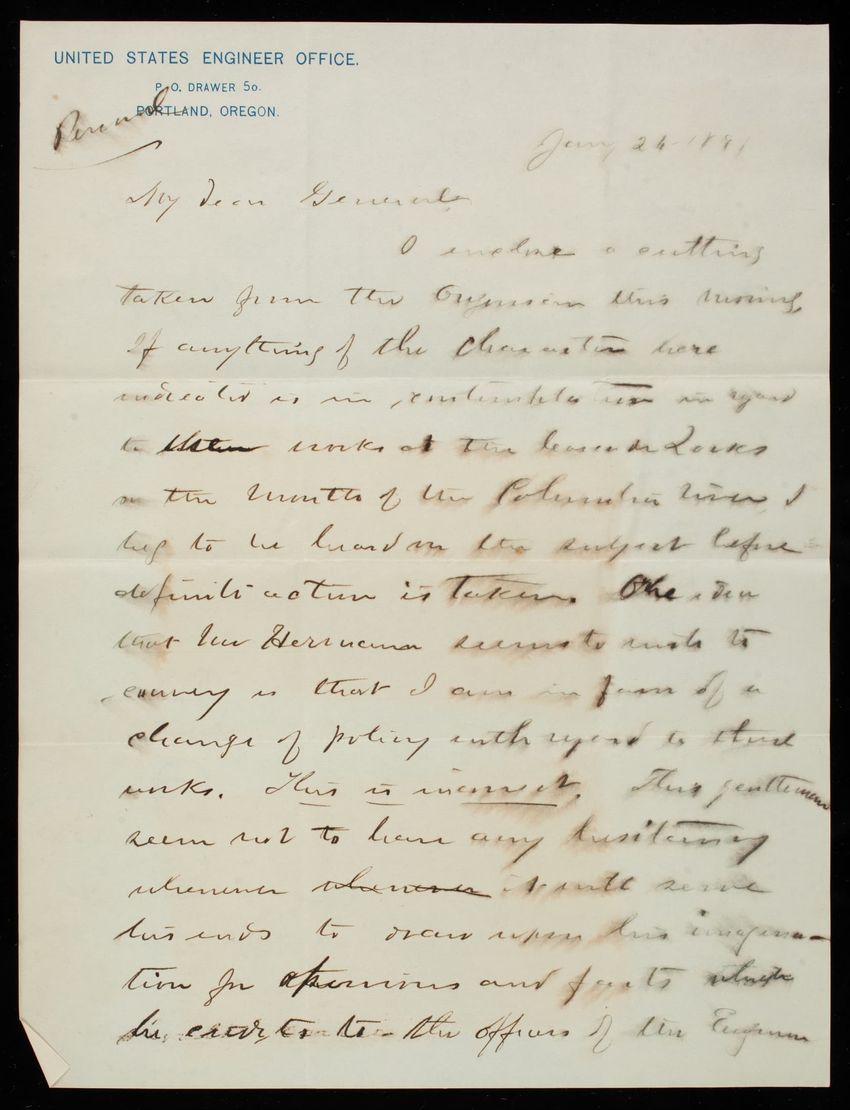 UNITED STATES ENGINEER OFFICE.
P. O. DRAWER 50.
PORTLAND, OREGON.
Personal
Jany 26 1891
My dear General
I enclose a cutting
taken from the Oregonian this morning,
If anything of the character here
indicated is in contemplation in regard
to these works at the Cascade Locks
or the mouth of the Columbia River I
beg to be heard on the subject before
definite action is taken. The idea
that Mr Hermann seems to wish to
convey is that I am in favor of a
change of policy with regard to these
works. This is incorrect. This gentleman
seem not to have any hesitancy
whenever whenever it will serve
his ends to draw upon his imagina-
tion for opinions and facts which
he credits to the officers of the Engineer